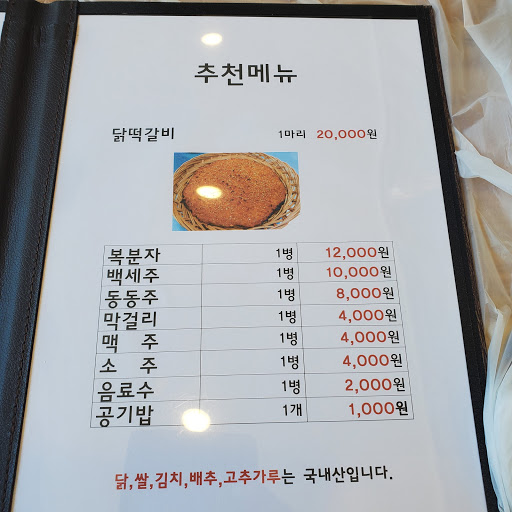 추천메뉴
닭떡갈비 1마리 20,000원
복분자 1병 12,000원
백세주 1병 10,000원
동동주 1병 8,000원
막걸리 1병 4,000원
맥 주 1병 4,000원
소 주 1병 4,000원
음료수 1병 2,000원
공기밥 1개 1,000원
닭,쌀,김치,배추,고추가루는 국내산입니다.